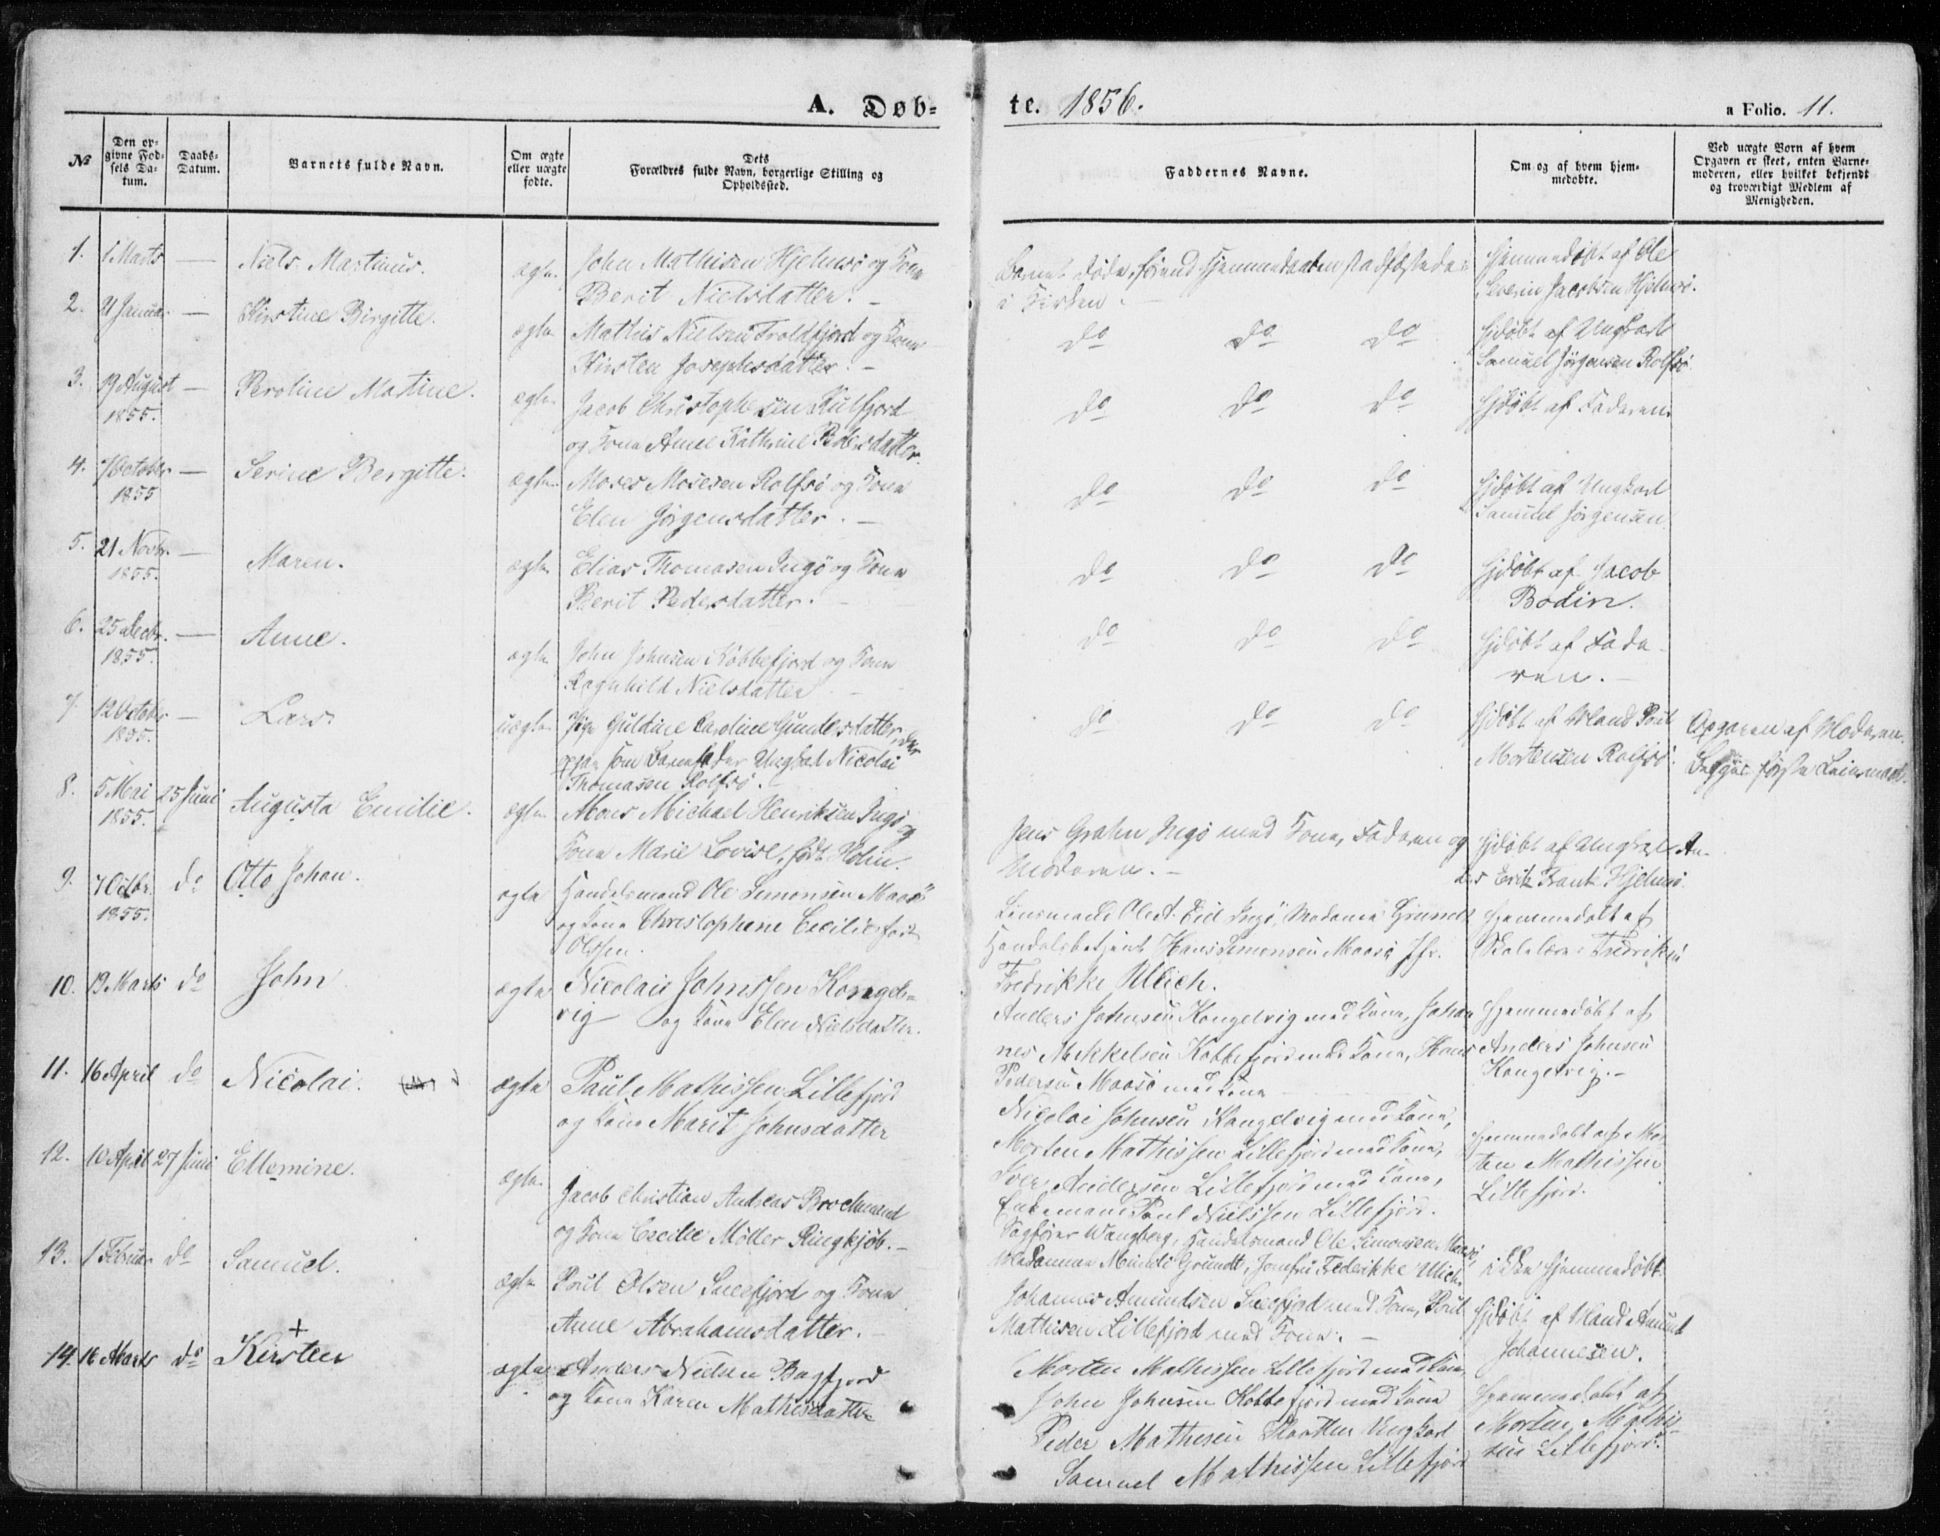 A. Døb-
te. 1856.
a Folio. 11.
No
Den op-
givne Fød-
sels Da-
tum.
Daabs-
Datum.
Barnets fulde Navn.
Om ægte
eller uægte
fødte.
Dets
Forældres fulde Navn, borgerlige Stilling og
Opholdssted.
Faddernes Navne.
Om og af hvem hjem-
medøbte.
Ved uægte Børn af hvem
Opgaven er skeet, enten Barne-
moderen, eller hvilket bekjendt
og troværdigt Medlem af
Menigheden.
1. 1 Marts — Niels Martinus. ægte. John Mathisen Hjelmsö og Kone
Berit Nielsdatter. —
Barnet døde, førend Hjemmedaaben stadfæstedes
i Kirken. —
Hjemmedøbt af Ole
Severin Jacobsen Hjelmsö.
2. Januar — Kirstine Birgitte. ægte Mathis Nielsen Troldfjord og Kone
Kirsten Josephsdatter. —
do do do
Hjdøbt af Ungkarl
Samuel Jörgensen Rolfsö
3. 19 August —
1855.
Beroline Martine. ægte Jacob Christophersen Kulfjord
og Kone Anne Kathrine Pedersdatter.
do do do
Hjdøbt af Faderen.
4. 7 October —
1855
Serine Bergitte. ægte Moses Mosesen Rolfsö og Kone
Elen Jørgensdatter. —
do do do
Hjdøbt af Ungkarl
Samuel Jørgensen
5. 21 Novbr. —
1855.
Maren. ægte Elias Thomasen Ingö og Kone
Berit Pedersdatter. —
do do do
Hjdøbt af Jacob
Bodin.
6. 25 Decbr. —
1855.
Anne. ægte John Johnsen Kobbefjord og Kone
Ragnhild Nielsdatter —
do do do
Hjdøbt af Fade-
ren. —
7. 12 October —
1855.
Lars. uægte Pige Guldine Caroline Gundersdatter,
som Barnefader Ungkarl Nicolai
Thomassen Rolfsö.
do do do
Hjdøbt af Mand Poul
Mortensen Rolfsö.
Opgaven af Moderen.
Begges første Leiermaal.
8. 5 Mai 25 Juni
1855.
Augusta Emilie. ægte Mons Michael Henriksen Ingö og
Kone Marie Lovise, født Holm.
Jens Grahn Ingö med Kone, Faderen og
Moderen. —
Hjdøbt af Ungkarl An-
ders Erik Hjelmsö.
9. 7 Octbr. do
1855.
Otto Johan. ægte Handelsmand Ole Simonsen Maasö
og Kone Christophine Cecilie født
Olssen.
Lensmand Ole A. Ingö, Madame Grundt
Handelsbetjent Hans Simonsen Maasö Jfr.
Fredrikke Ullich.
Hjemmedøbt af
Skolelær: Fredriksen
10. 19 Marts do John ægte Nicolai Johnssen Kongels-
vig og Kone Elen Nielsdatter.
Anders Johnsen Kongelvig med Kone, Johan-
nes Mikkelsen Kobbefjord med Kone, Hans
Pedersen Maasö med Kone
Hjemmedøbt af
Anders Johnsen
Kongelvig. —
11. 16 April do Nicolai. ægte Paul Mathissen Lillefjord
og Kone Marit Johnsdatter
Nicolai Johnsen Kongelvig med Kone,
Morten Mathissen Lillefjord med Kone,
Iver Andersen Lillefjord med Kone,
Enkemand Paul Nielssen Lillefjord.
Hjemmedøbt af Mor-
ten Mathissen
Lillefjord.
12. 10 April 27 Juni Ellemine. ægte Jacob Christian Andreas Brochmand
og Kone Cecilie Möller Ringkjöb. —
Sagfører Wangberg, Handelsmand Ole Simonsen Maasö,
Madamme Grundt, Jomfru Frederikke Ulich
i Hjemmedøbt
13. 1 Februar do Samuel. ægte Poul Olsen Sneefjord og Kone
Anne Abrahamsdatter. —
Johannes Amundsen Sneefjord med Kone, Poul
Mathisen Lillefjord med Kone. —
Hjdøbt af Mand Amund
Johannesen.
14. 16 Marts do Kirsten + ægte Anders Nielsen Bagfjord
og Kone Karen Mathisdatter
Morten Mathissen Lillefjord med Kone,
John Johnsen Kobbefjord med Kone
Peder Mathisen Ungkarl
Samuel Mathissen Lillefjord
Hjemmedøbt af
Morten Mathis-
sen Lillefjord.